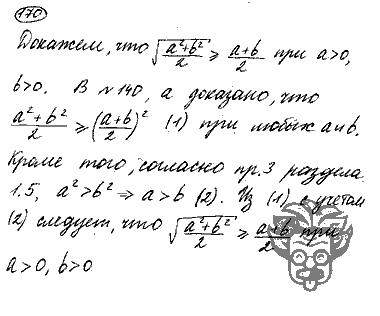 170
Докажем, что √(a²+b²)/2 ⩾ (a+b)/2 при a>0,
b>0. В №140, а доказано, что
(a²+b²)/2 ⩾ ((a+b)/2)² (1) при любых a и b.
Кроме того, согласно пр.3 раздела
1.5, a²>b² ⇒ a>b (2). Из (1) с учетом
(2) следует, что √(a²+b²)/2 ⩾ (a+b)/2 при
a>0, b>0